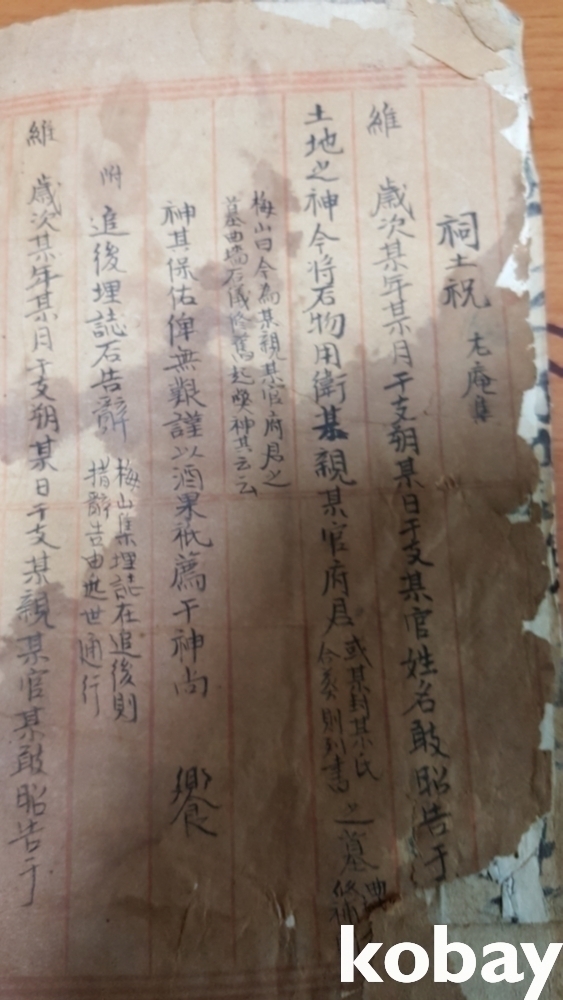 祠土祝 尤庵集
維
歲次某年某月干支朔某日干支某官姓名敢昭告于
土地之神今將石物用衛某親某官府君 或某封某氏 合葬則列書 之墓
梅山曰今為某親某官府君之
墓曲墻石儀修
神其保佑俾無艱謹以酒果祇薦于神尚 饗
附 追後埋誌石告辭 梅山集埋誌在追後則
措辭告由近世通行
維
歲次某年某月干支朔某日干支某親某官某敢昭告于
kobay